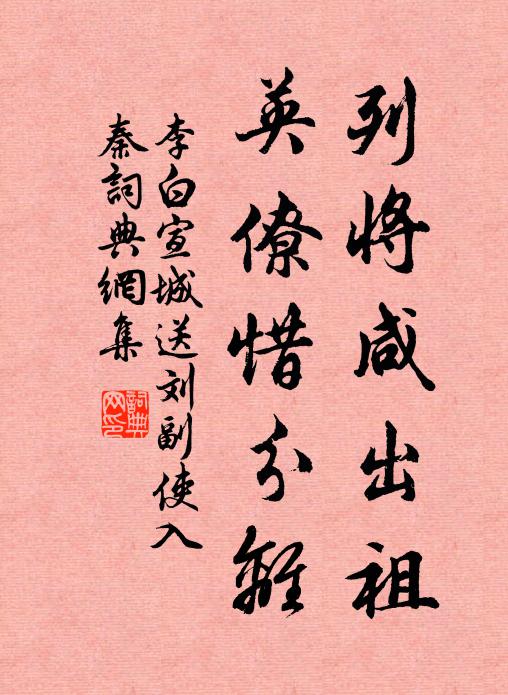 列将咸出祖
英僚惜分離
李白宣城送刘副使入
秦詞典網集
詞典
网印